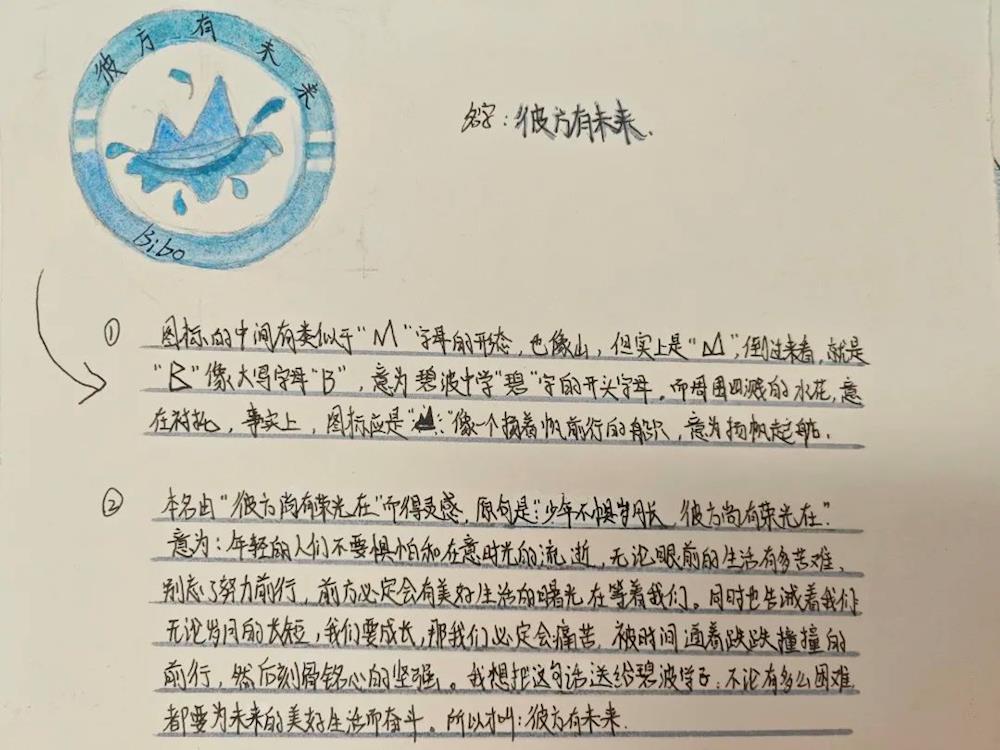 彼方有未来
Bibo
名字:彼方有未来.
① 图标的中间有类似于“M”字母的形态,也像山,但实上是“M”,倒过来看,就是
“B”像大写字母“B”,意为碧波中学“碧”字的开头字母。而周围四溅的水花,意
在衬托,事实上,图标应是“ ”像一个扬着帆前行的船只,意为扬帆起航.
② 本名由“彼方尚有荣光在”而得灵感,原句是:“少年不惧岁月长 彼方尚有荣光在”
意为:年轻的人们不要惧怕和在意时光的流逝,无论眼前的生活有多苦难,
别忘了努力前行,前方必定会有美好生活的曙光在等着我们。同时也告诫着我们
无论岁月的长短,我们要成长,那我们必定会痛苦,被时间逼着跌跌撞撞的
前行,然后刻骨铭心的坚强。我想把这句话送给碧波学子:不论有多么困难
都要为未来的美好生活而奋斗。所以才叫:彼方有未来.